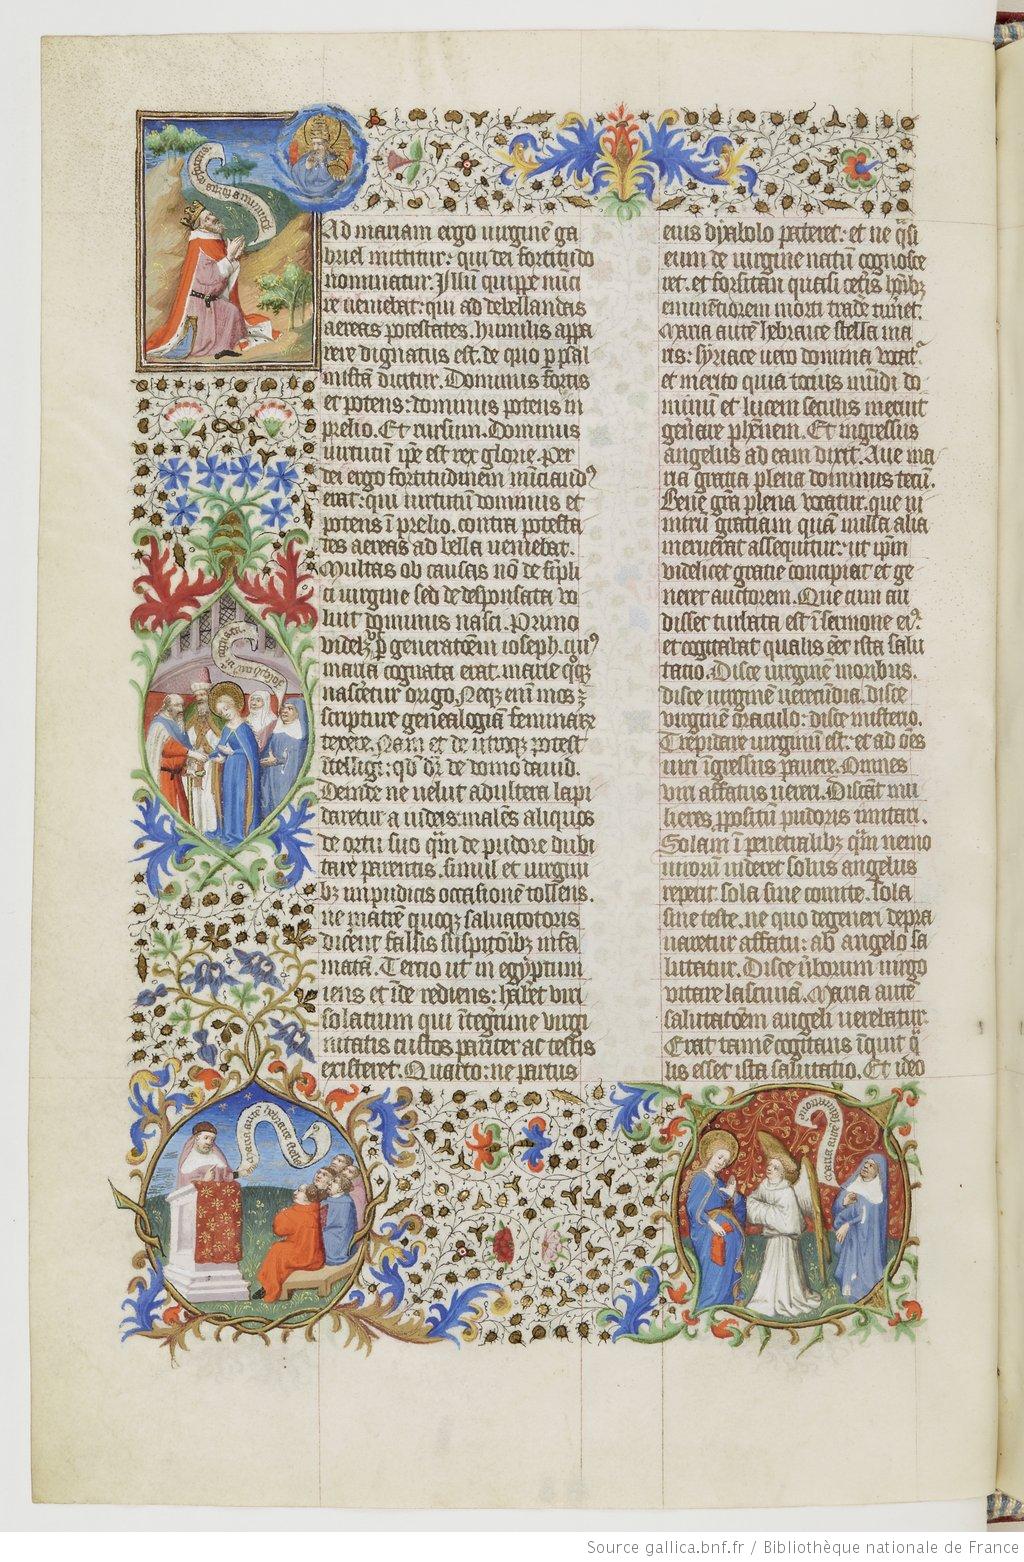 Ad mariam ergo virginē ga
briel mittitur: qui dei fortitudo
nominatur: Illū quippe nūci
re veniebat: qui ad debellandas
aereas potestates. humilis appa
rere dignatus est. de quo p psal
mistā dicitur. Dominus fortis
et potens: dominus potens in
prelio. Et rursum. Dominus
virtutū ipe est rex glorie. per
dei ergo fortitudinem nūciandꝰ
erat: qui virtutū dominus et
potens ī prelio. contra potesta
tes aereas ad bella veniebat.
Multas ob causas nō de simpli
ci virgine sed de desponsata vo
luit dominus nasci. Primo
videlꝫ ꝑ generatōem ioseph. cuiꝰ
maria cognata erat. marie qꝫ
nascetur origo. Neqꝫ enī mos ē
scripture genealogiā feminarꝝ
texere. Nam et de utroqꝫ potest
ītelligi: qd dr̄ de domo david.
Deinde ne velut adultera lapi
daretur a iudeis. malēs aliquos
de ortu suo q̄m de pudore dubi
tare parentis. simul et virgini
bꝫ impudicis occasionē tollens.
ne matrē quicqꝫ salvatotoris
dicēnt falsis suspitōibꝫ infa
matā. Tercio ut in egyptum
iens et īde rediens: habēt viri
solatium qui ītegrime virgi
nitatis custos pariter ac testis
existeret. Quarto: ne partus
eius dyabolo pateret: et ne qͣsi
eum de virgine natū cognosce
ret. et forsitan quasi cetīs hoībꝫ
eminētiorem morti tradē timēt.
Maria autē hebraice stella ma
ris: syriace vero domina vocat᷑
et merito quia tocius mūdi do
minū et lucem seculis meruit
genāre phēnem. Et ingressus
angelus ad eam dixit. Ave ma
ria gratia plena dominus tecū.
Bene grā plena vocatur. que ni
mirū gratiam quā nulla alia
meruerat assequitur: ut ipm
videlicet gratie concipiat et ge
neret auctorem. Que cum au
disset turbata est ī sermone eiꝰ
et cogitabat qualis eēt ista salu
tatio. Disce virginē moribus.
disce virginē verecūdia. disce
virginē oraculo: disce misterio.
Trepidare virginū est: et ad oēs
viri īgressus pavere. Omnes
viri affatus vereri. Discāt mu
lieres ꝓpositū pudoris imitari.
Solam ī penetralibꝫ q̄m nemo
virorū videret solus angelus
reperit. sola sine comite. sola
sine teste. ne quo degeneri depra
varetur affatu: ab angelo sa
lutatur. Disce v̄borum virgo
vitare lasciviā. Maria autē
salutatōem angeli verebatur.
Erat tamē cogitans īquit qͣ
lis esset ista salutatio. Et ideo
Maria autē hebraice stella
Source gallica.bnf.fr / Bibliothèque nationale de France